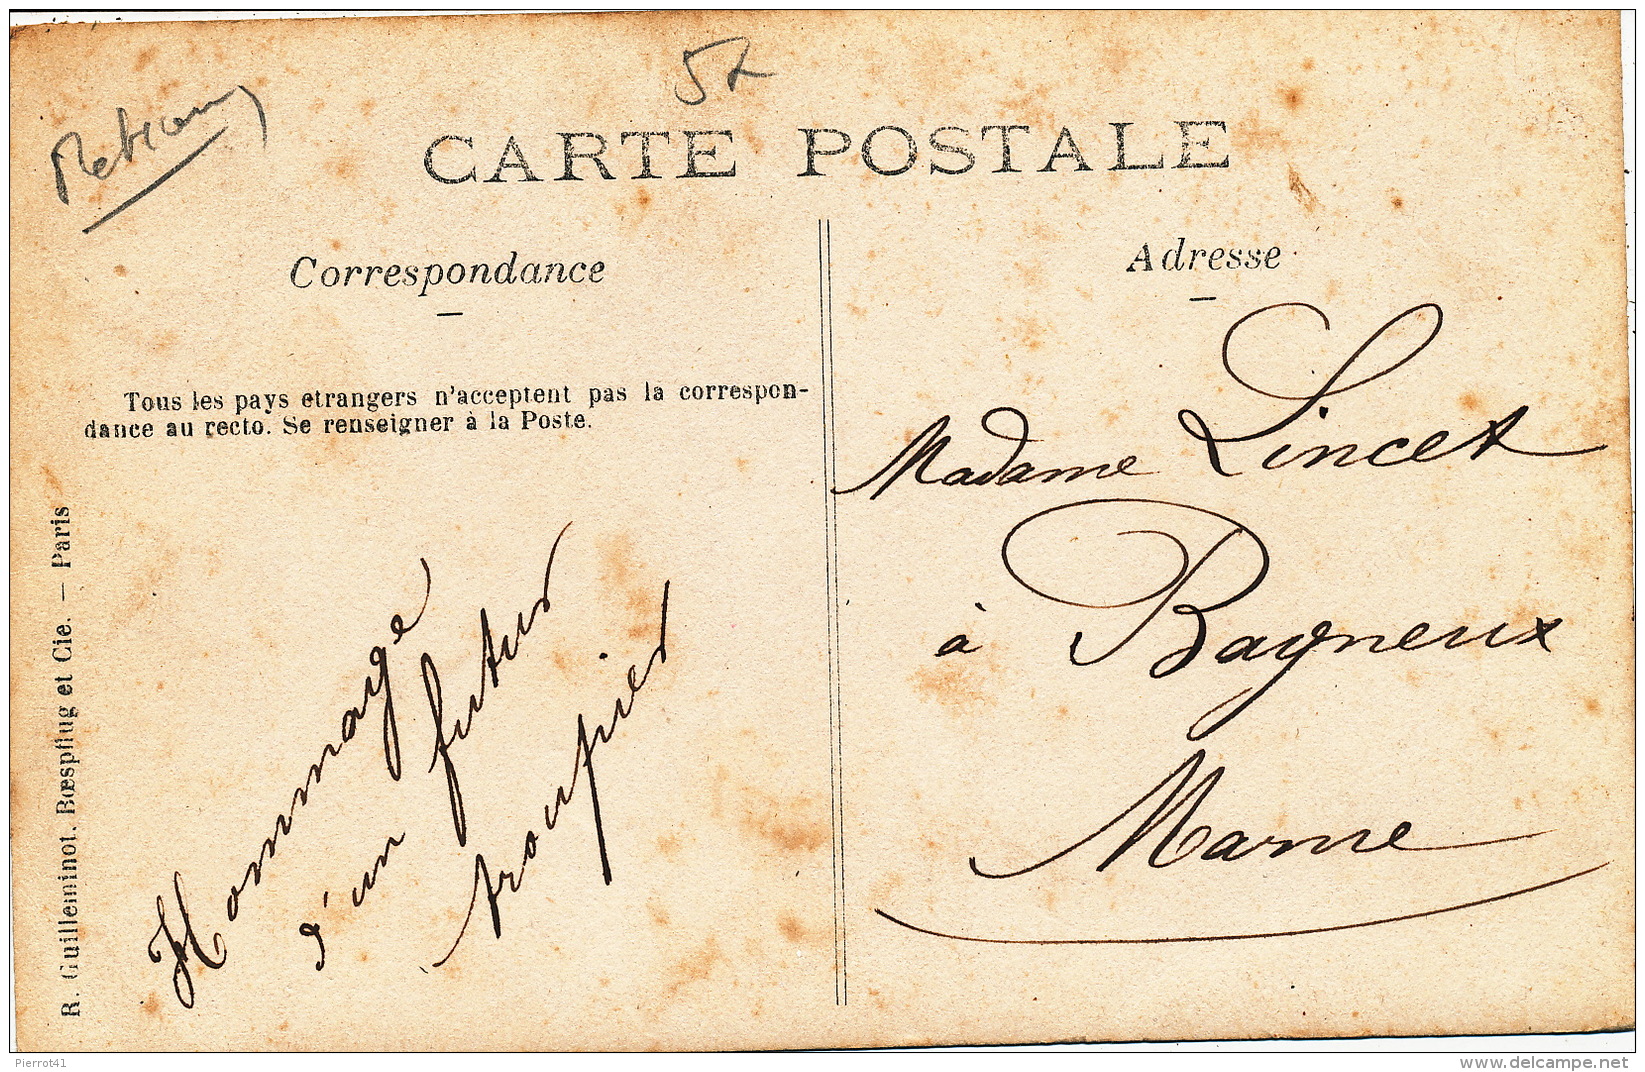 57
CARTE POSTALE
Correspondance
Adresse
Tous les pays etrangers n'acceptent pas la correspon-
dance au recto. Se renseigner à la Poste.
R. Guilleminot, Bœspflug et Cie. — Paris
Hommage
d'un futur
troupier
Madame Lincet
à Bagneux
Marne
Pierrot41
www.delcampe.net